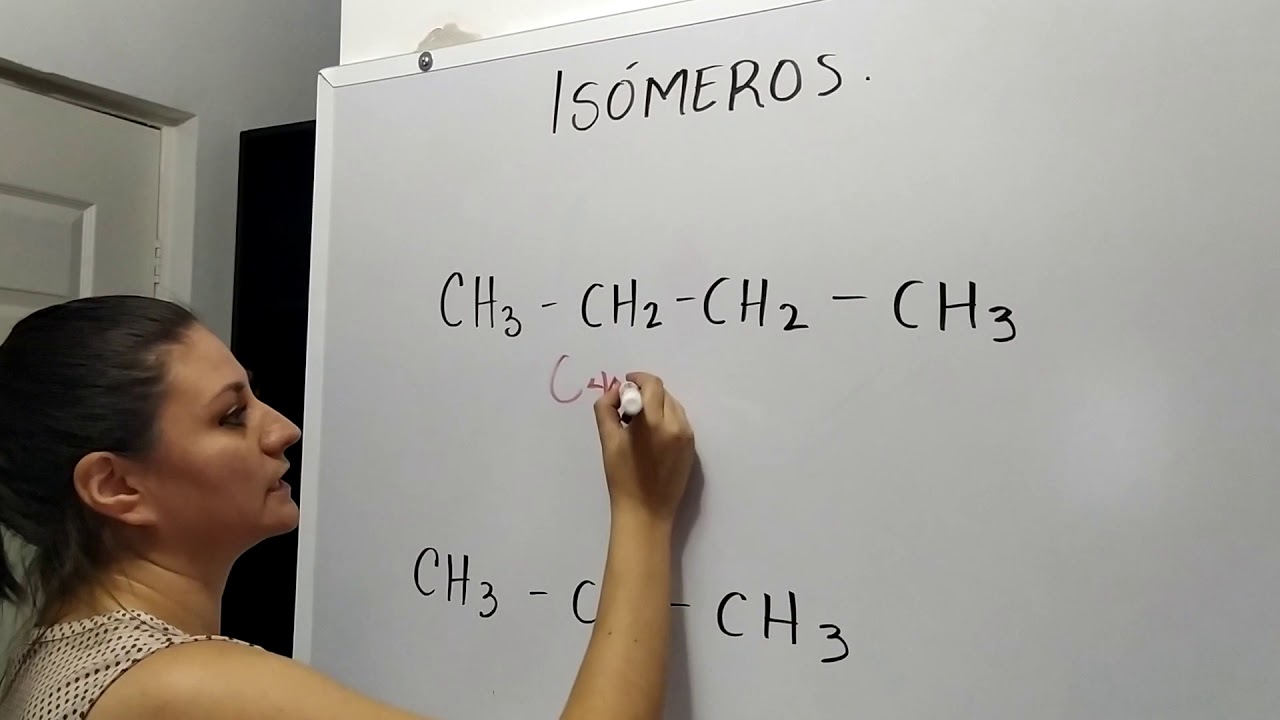 ISÓMEROS.
CH3 - CH2 - CH2 - CH3
C4
CH3 - C - CH3